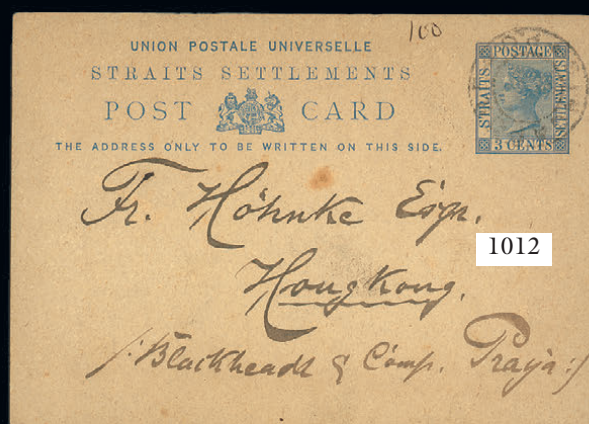 100
UNION POSTALE UNIVERSELLE
STRAITS SETTLEMENTS
POST CARD
THE ADDRESS ONLY TO BE WRITTEN ON THIS SIDE.
POSTAGE
STRAITS
SETTLEMENTS
3 CENTS
Fr. Höhnke Esqr.
1012
Hongkong.
/:Blackheadt & Comp. Praya:/